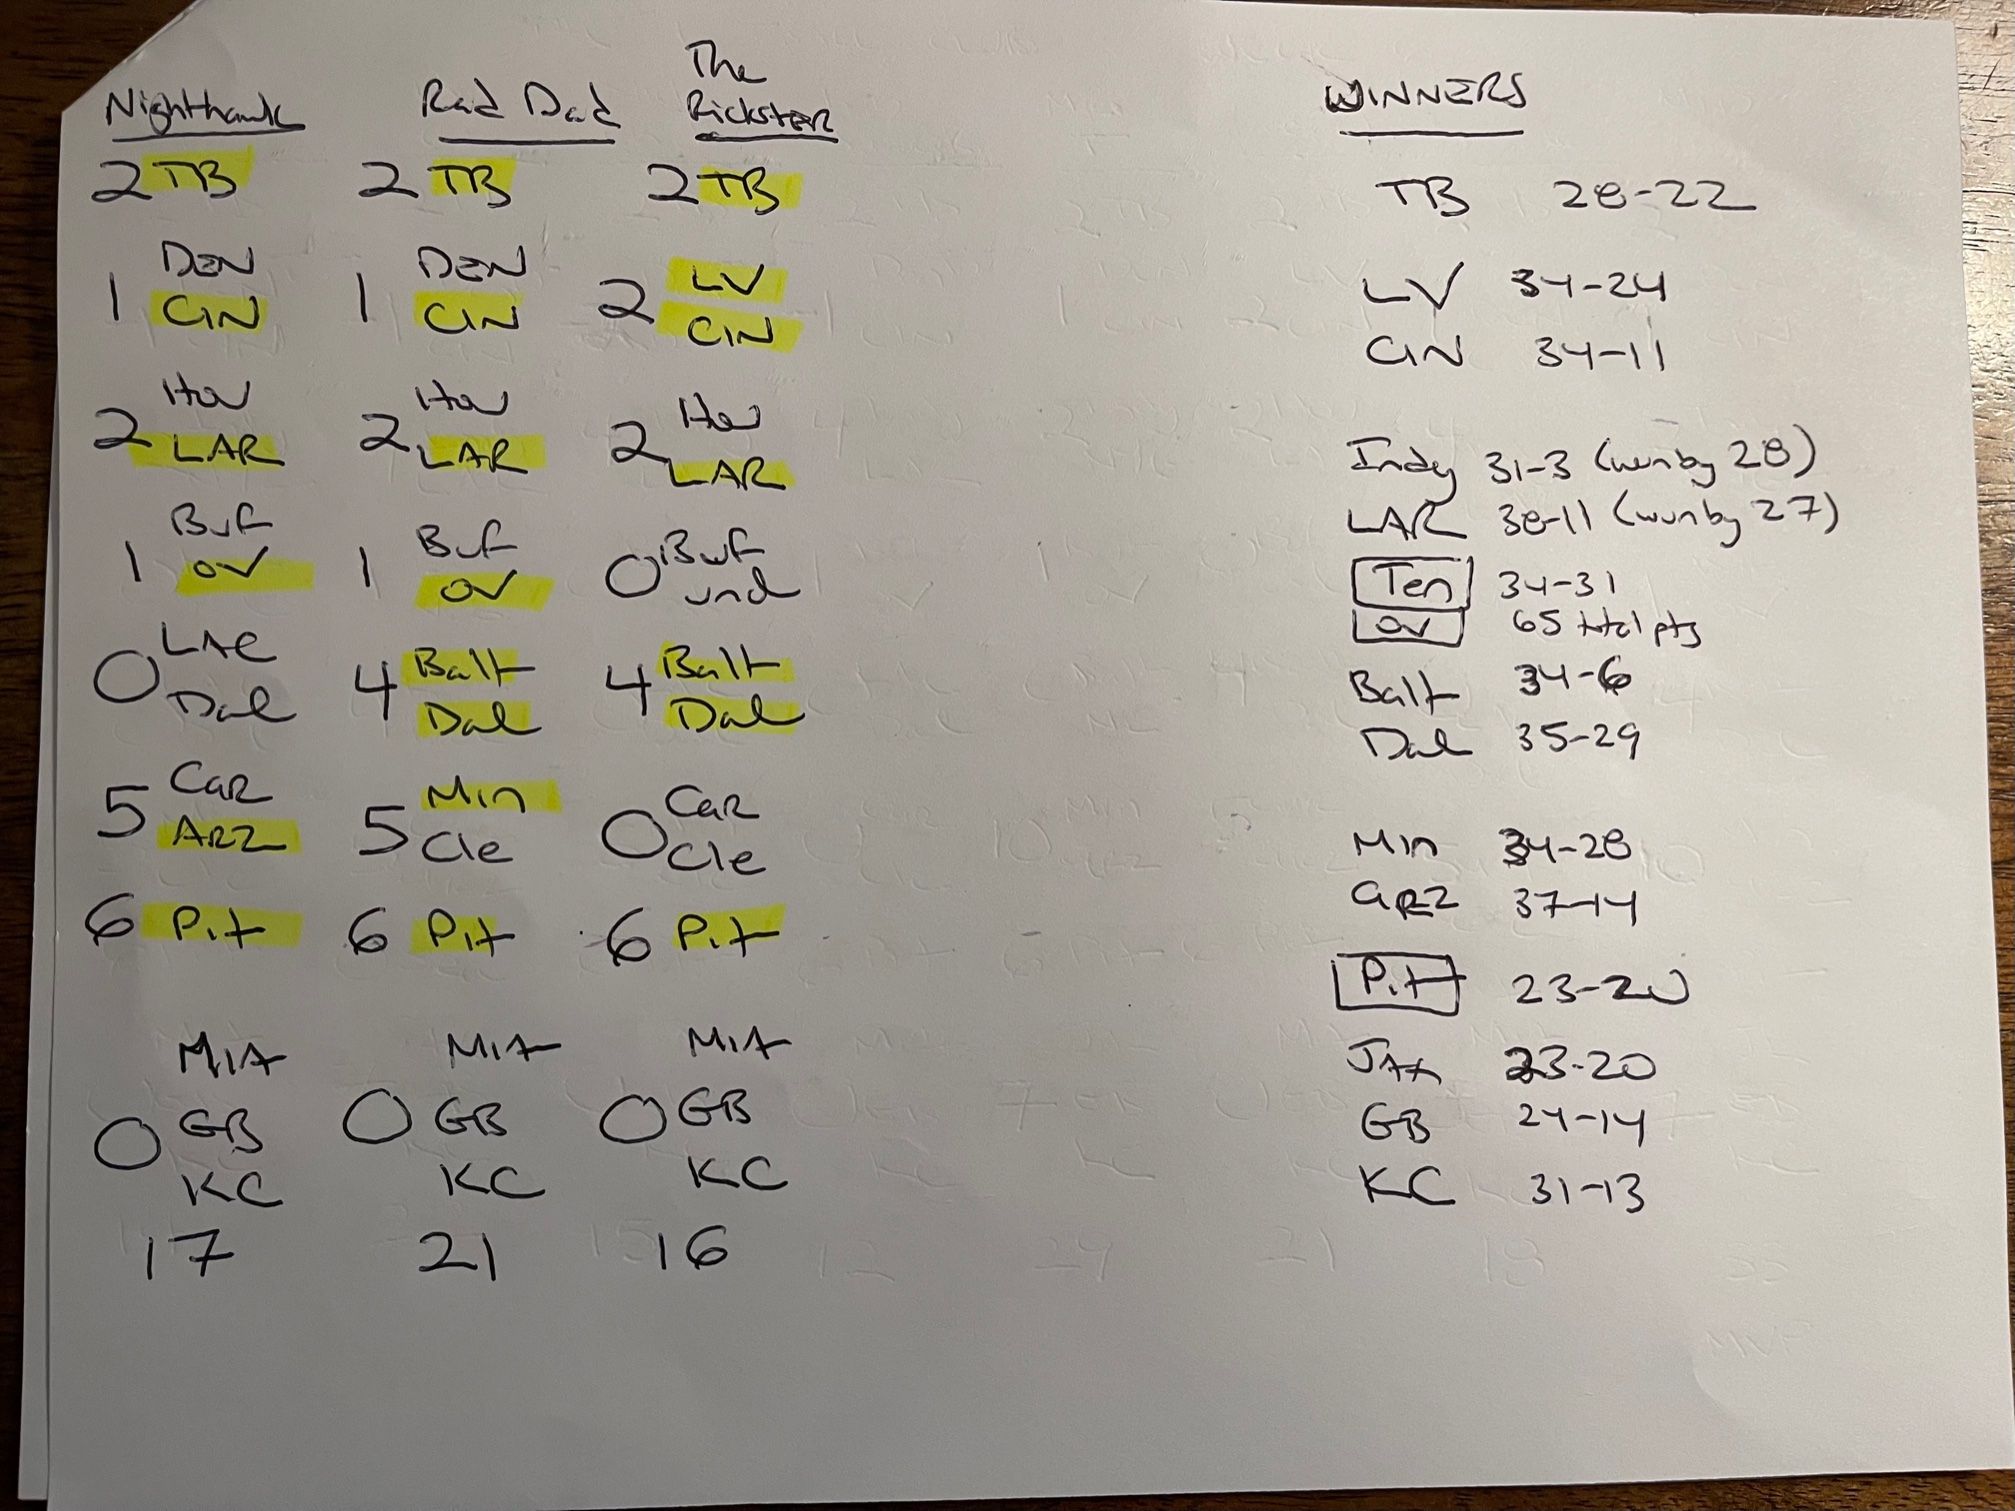 Nighthawk
2 TB
DEN
1 CIN
Hou
2 LAR
Buf
1 ov
0 LAC
Dal
Car
5 ARZ
6 Pit
MIA
0 GB
KC
17
Rad Dad
2 TB
DEN
1 CIN
Hou
2 LAR
Buf
1 ov
4 Balt
Dal
Min
5 Cle
6 Pit
MIA
0 GB
KC
21
The
Rickster
2 TB
LV
2 CIN
Hou
2 LAR
0 Buf
und
4 Balt
Dal
Car
0 Cle
6 Pit
MIA
0 GB
KC
16
WINNERS
TB 28-22
LV 34-24
CIN 34-11
Indy 31-3 (won by 28)
LAR 38-11 (won by 27)
Ten 34-31
ov 65 total pts
Balt 34-6
Dal 35-29
Min 34-28
ARZ 37-14
Pit 23-20
JAX 23-20
GB 24-14
KC 31-13